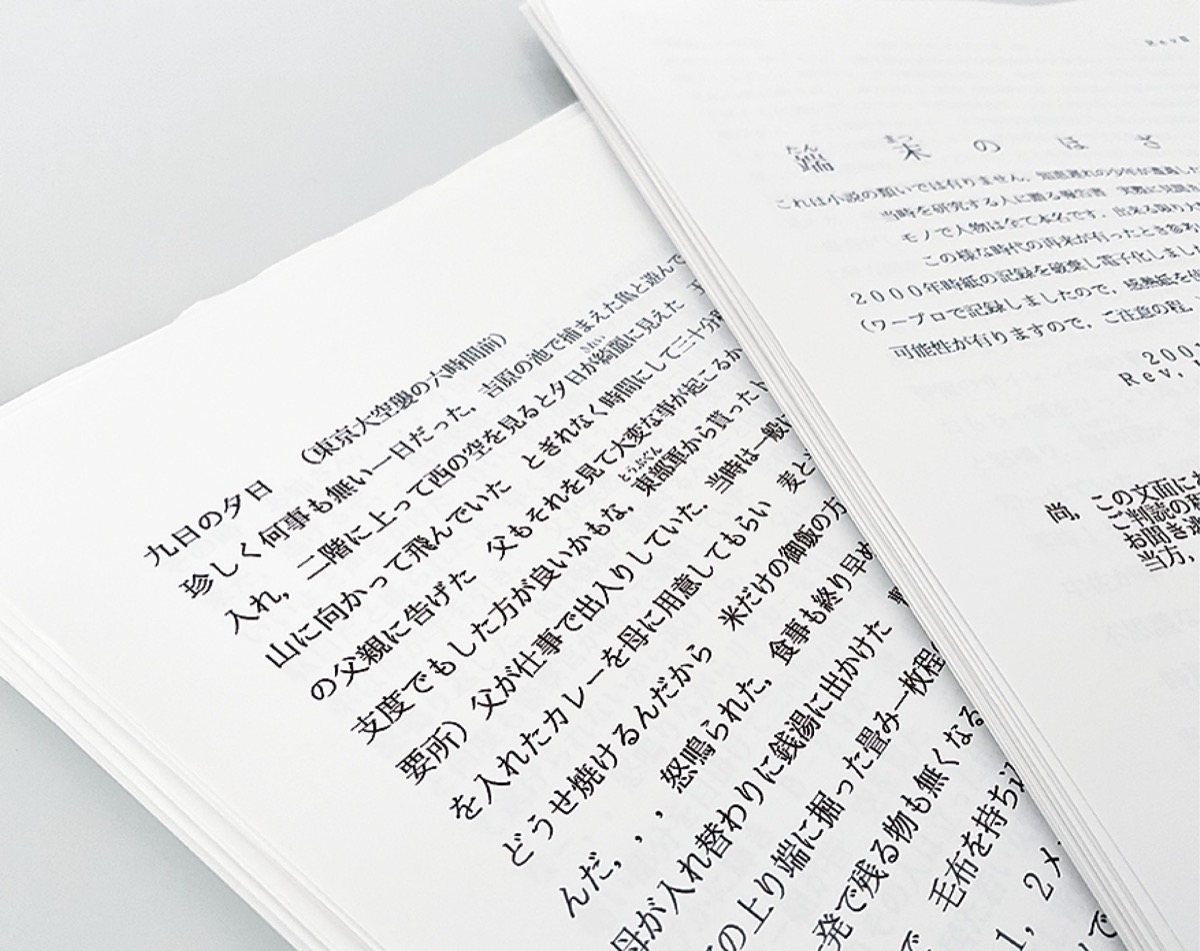 九日の夕日 （東京大空襲の六時間前）
珍しく何事も無い一日だった，吉原の池で捕まえた亀と遊んで
入れ，二階に上って西の空を見ると夕日が綺麗に見えた
山に向かって飛んでいた とぎれなく時間にして三十分
の父親に告げた 父もそれを見て大変な事が起こるか
支度でもした方が良いかもな，東部軍から貰った
要所）父が仕事で出入りしていた，当時は一般に
を入れたカレーを母に用意してもらい 麦と
どうせ焼けるんだから 米だけの御飯の方
んだ，，，怒鳴られた，食事も終り早め
母が入れ替わりに銭湯に出かけた
の上り端に掘った畳み一枚程
発で残る物も無くなる
で，毛布を持ち込
1，2メ
で
Rev
端末のほさ
これは小説の類いでは有りません，知恵遅れの少年が遭遇した
当時を研究する人に贈る報告書 実際に見聞き
モノで人物は全て本名です，出来る限り
この様な時代の再来が有ったとき参考
2000年時紙の記録を破棄し電子化しました
（ワープロで記録しましたので，感熱紙を使
可能性が有りますので，ご注意の程，
200
Rev.
尚，この文面に
ご判読の
お聞き
当方，